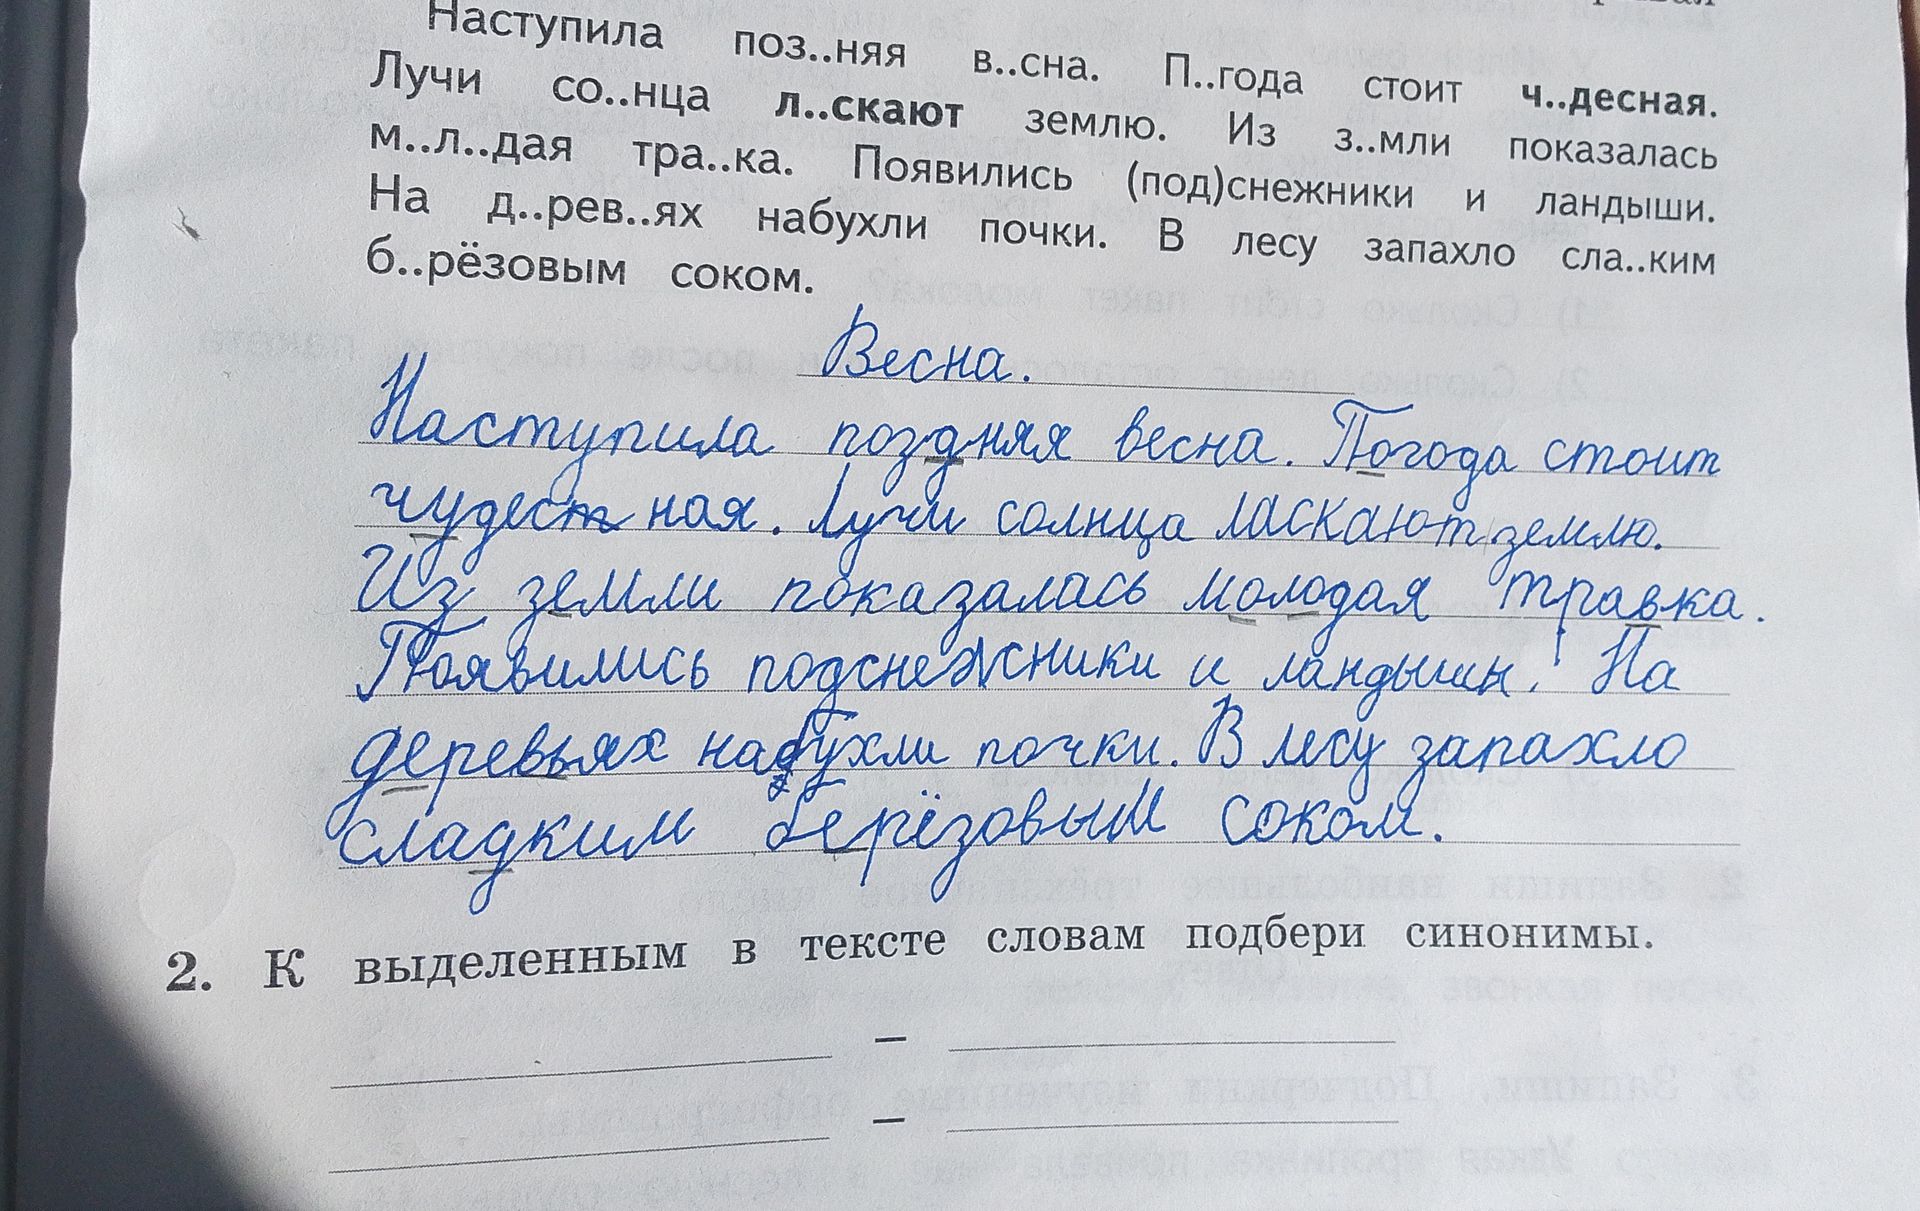 Наступила поз..няя в..сна. П..года стоит ч..десная.
Лучи со..нца л..скают землю. Из з..мли показалась
м..л..дая тра..ка. Появились (под)снежники и ландыши.
На д..рев..ях набухли почки. В лесу запахло сла..ким
б..рёзовым соком.
Весна.
Наступила поздняя весна. Погода стоит
чудестная. Лучи солнца ласкают землю.
Из земли показалась молодая травка.
Появились подснежники и ландыши. На
деревьях набухли почки. В лесу запахло
сладким берёзовым соком.
2. К выделенным в тексте словам подбери синонимы.
–
–